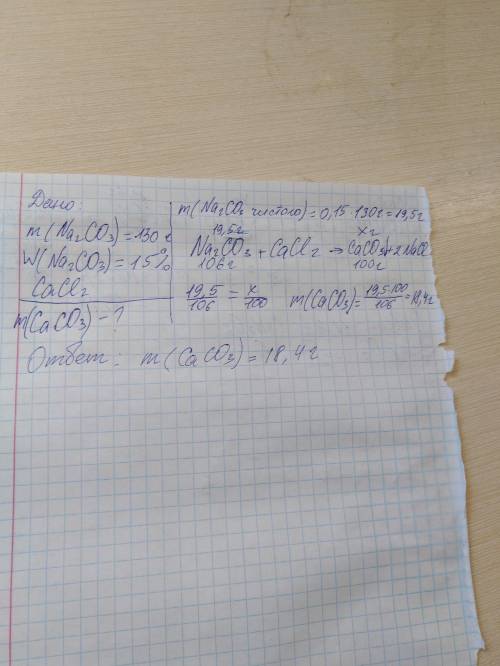 Дано:
m(Na₂CO₃)=130 г
W(Na₂CO₃)=15%
CaCl₂
m(CaCO₃)-?
m(Na₂CO₃ чистого)=0,15·130г=19,5г
19,5г xг
Na₂CO₃+CaCl₂→CaCO₃↓+2NaCl
106г 100г
19,5/106=x/100 m(CaCO₃)=19,5·100/106=18,4г
Ответ: m(CaCO₃)=18,4г